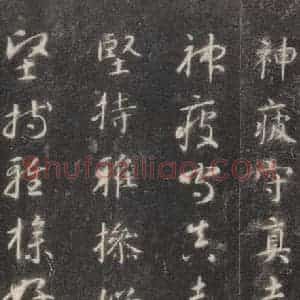 神疲守真志
神疲守真志
堅持雅操好
堅持雅操好
Shufaziliao.COM